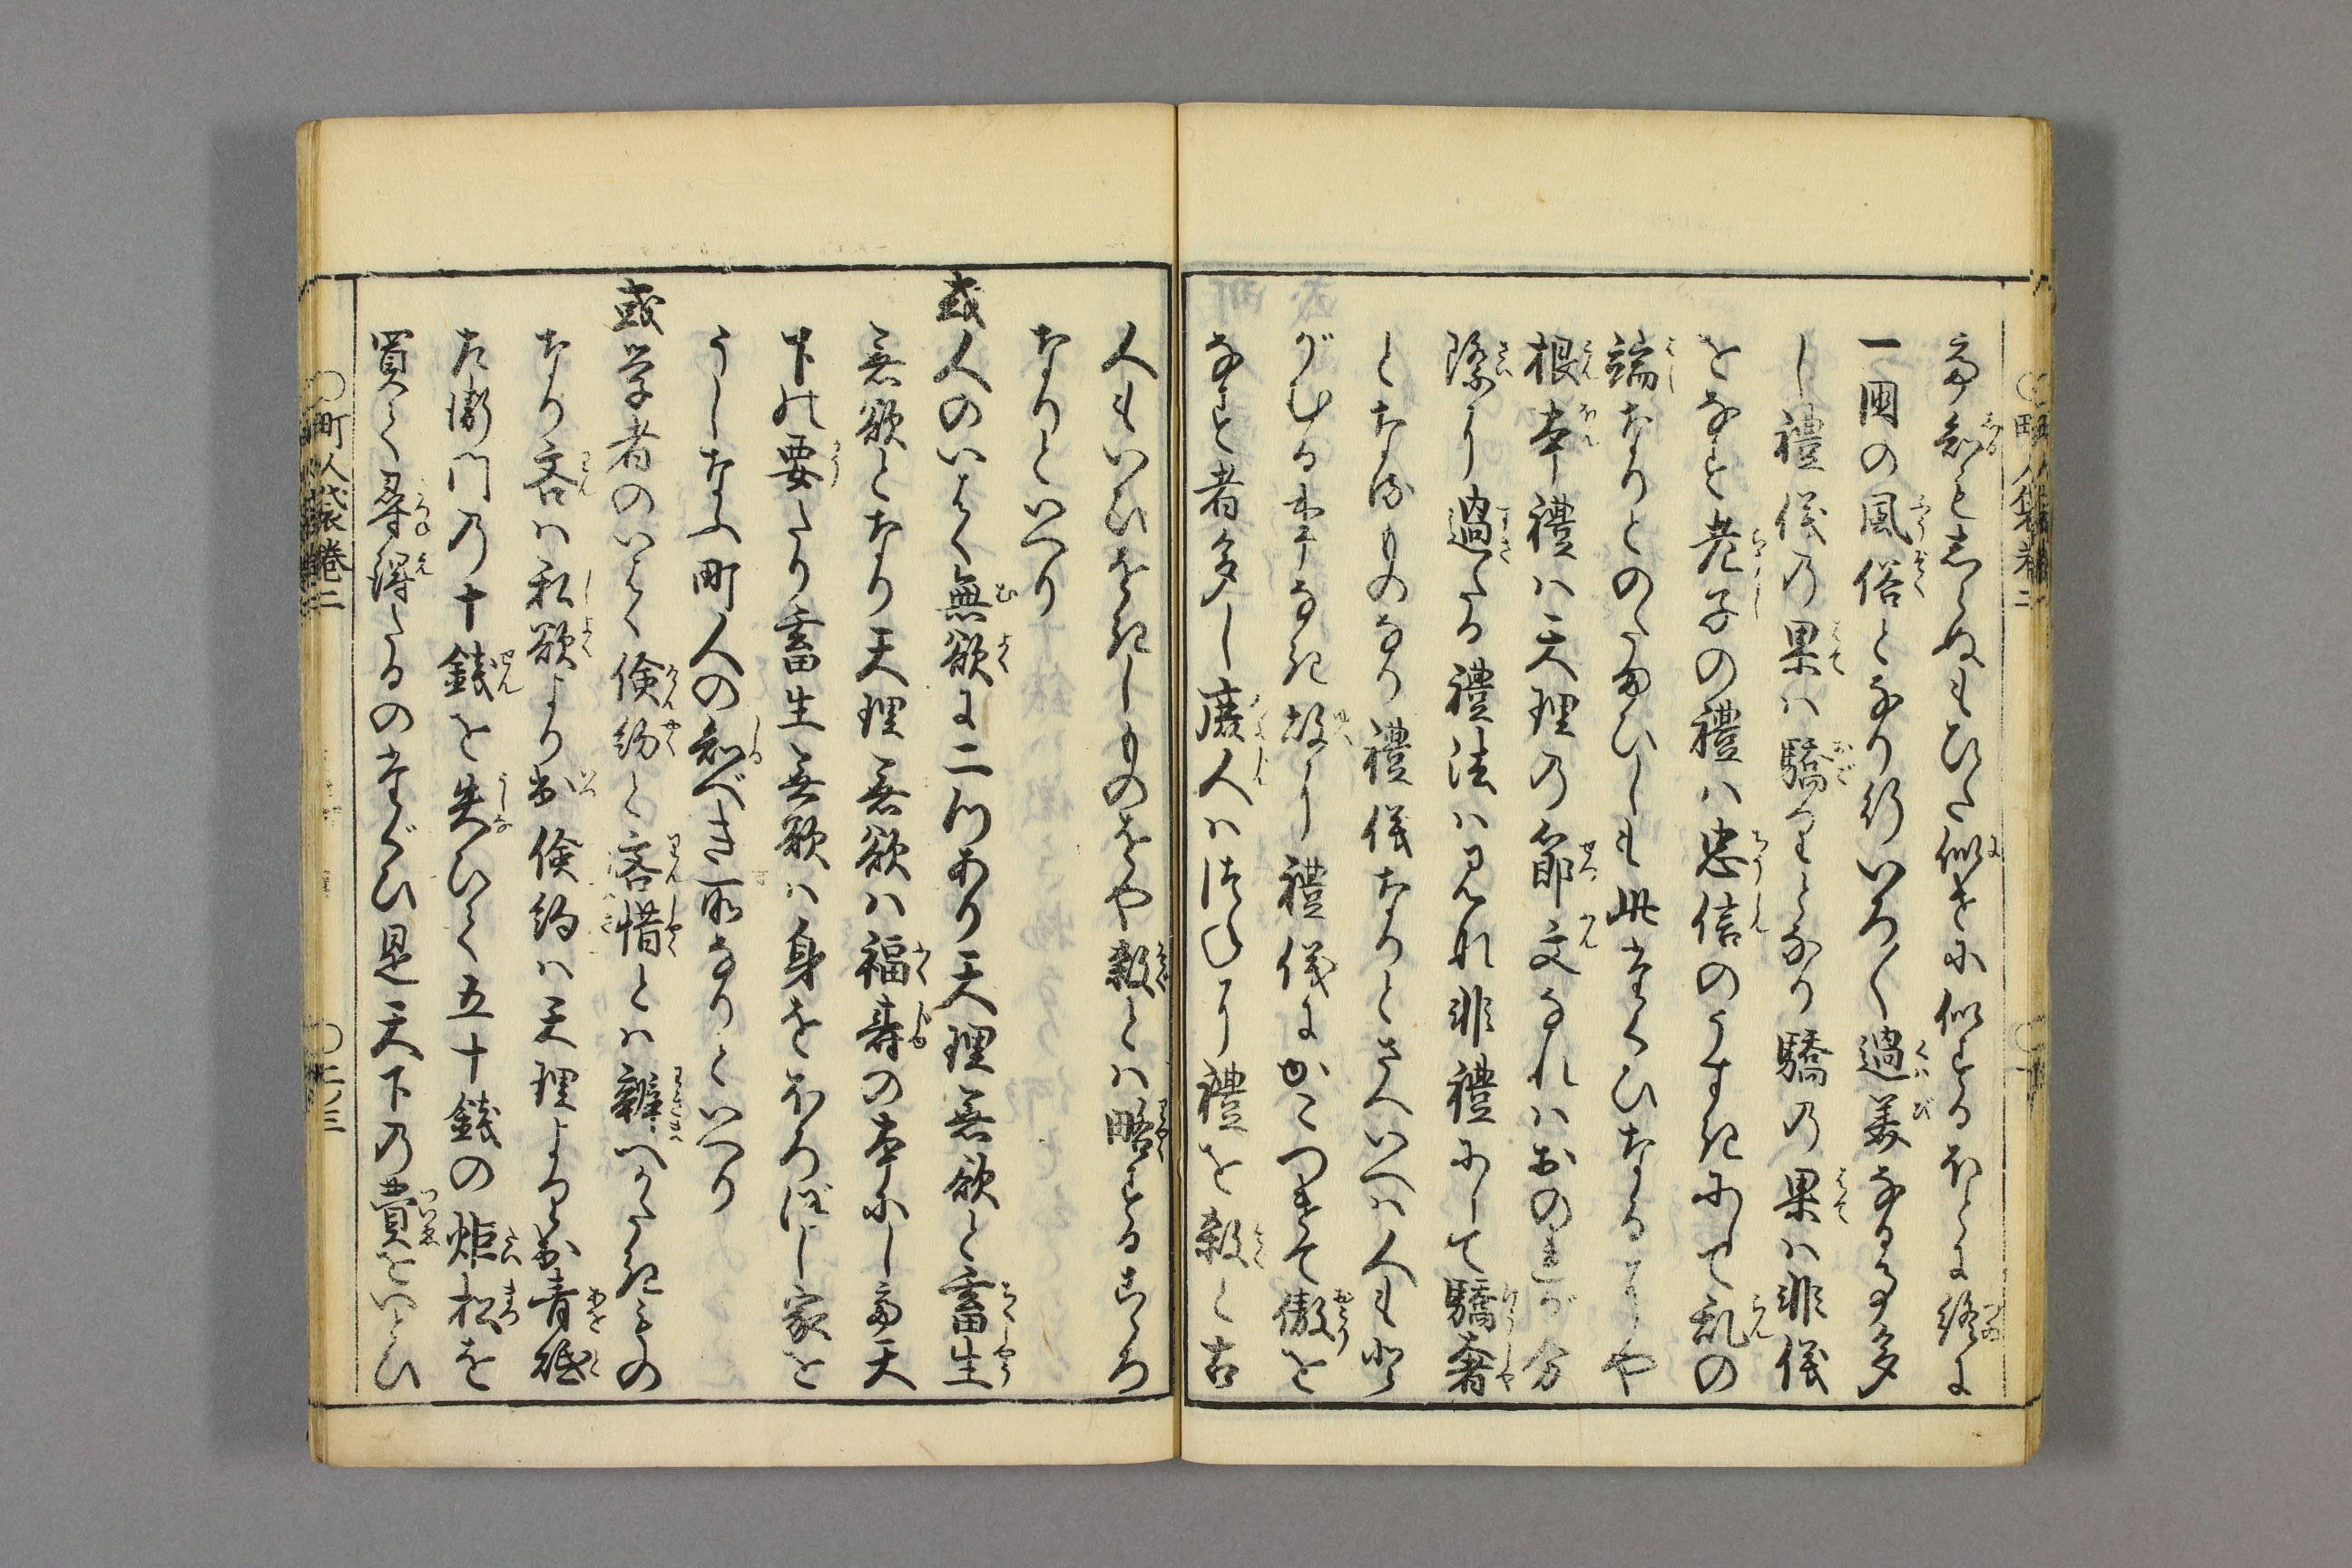 一国の風俗となり行いろ〳〵過美なる事多
し禮儀の果ハ驕りとなり驕の果ハ非儀
となる老子の禮ハ忠信のうすきにして乱の
端なりとのたまひしも此たぐひなるにや
根本禮ハ天理の節文なれハおのれが分
際に過たる禮法ハそれ非禮にして驕奢
となるものなり禮儀なりとさへいへハ人も
がむる事なき故に禮儀にかこつけて傲を
なす者多し廉人ハつねに禮を殺く古
人もいひをきしものをや殺とハ略するこゝろ
なりといへり
或人のいはく無欲に二つあり天理無欲と畜生
無欲となり天理無欲ハ福壽の本にし而天
下の要たり畜生無欲ハ身をほろぼし家を
うしなふ町人の知べき所なりといへり
或学者のいはく倹約と吝惜とハ辨へがたきもの
なり吝ハ私欲より出倹約ハ天理より出青砥
左衛門の十銭を失ひて五十銭の炬松を
買て尋得たるのたぐひ是天下の費をいとひ
町人袋巻二
〇二ノ三